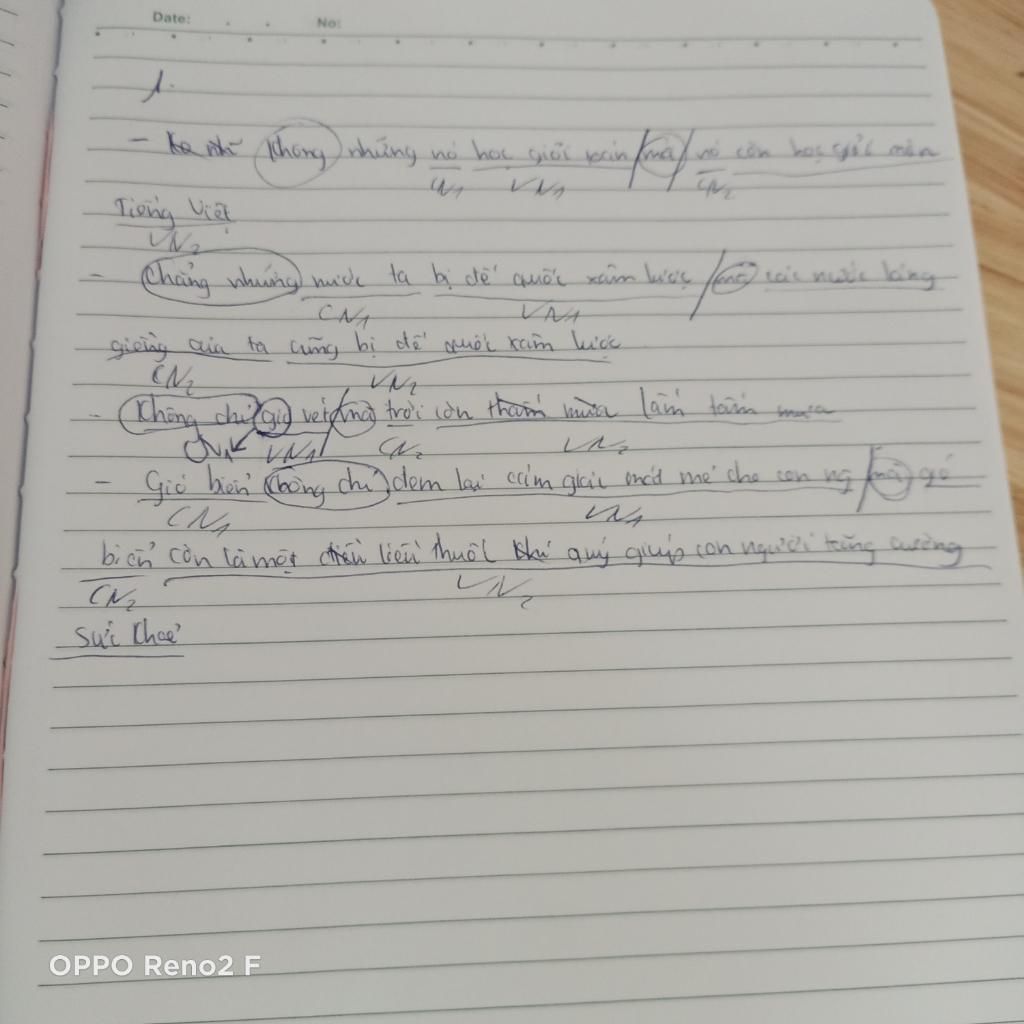 Date: No:
1.
- Không những nó học giỏi toán mà nó còn học giỏi môn
CN1 VN1 CN2
Tiếng Việt
VN2
- Chẳng những nước ta bị đế quốc xâm lược mà các nước láng
CN1 VN1
giềng của ta cũng bị đế quốc xâm lược
CN2 VN2
- Không chỉ gió rét mà trời còn mưa lấm tấm mưa
CN1 VN1 CN2 VN2
- Gió biển không chỉ đem lại cảm giác mát mẻ cho con ng mà gió
CN1 VN1
biển còn là một liều thuốc quý giúp con người tăng cường
CN2 VN2
sức khoẻ
OPPO Reno2 F